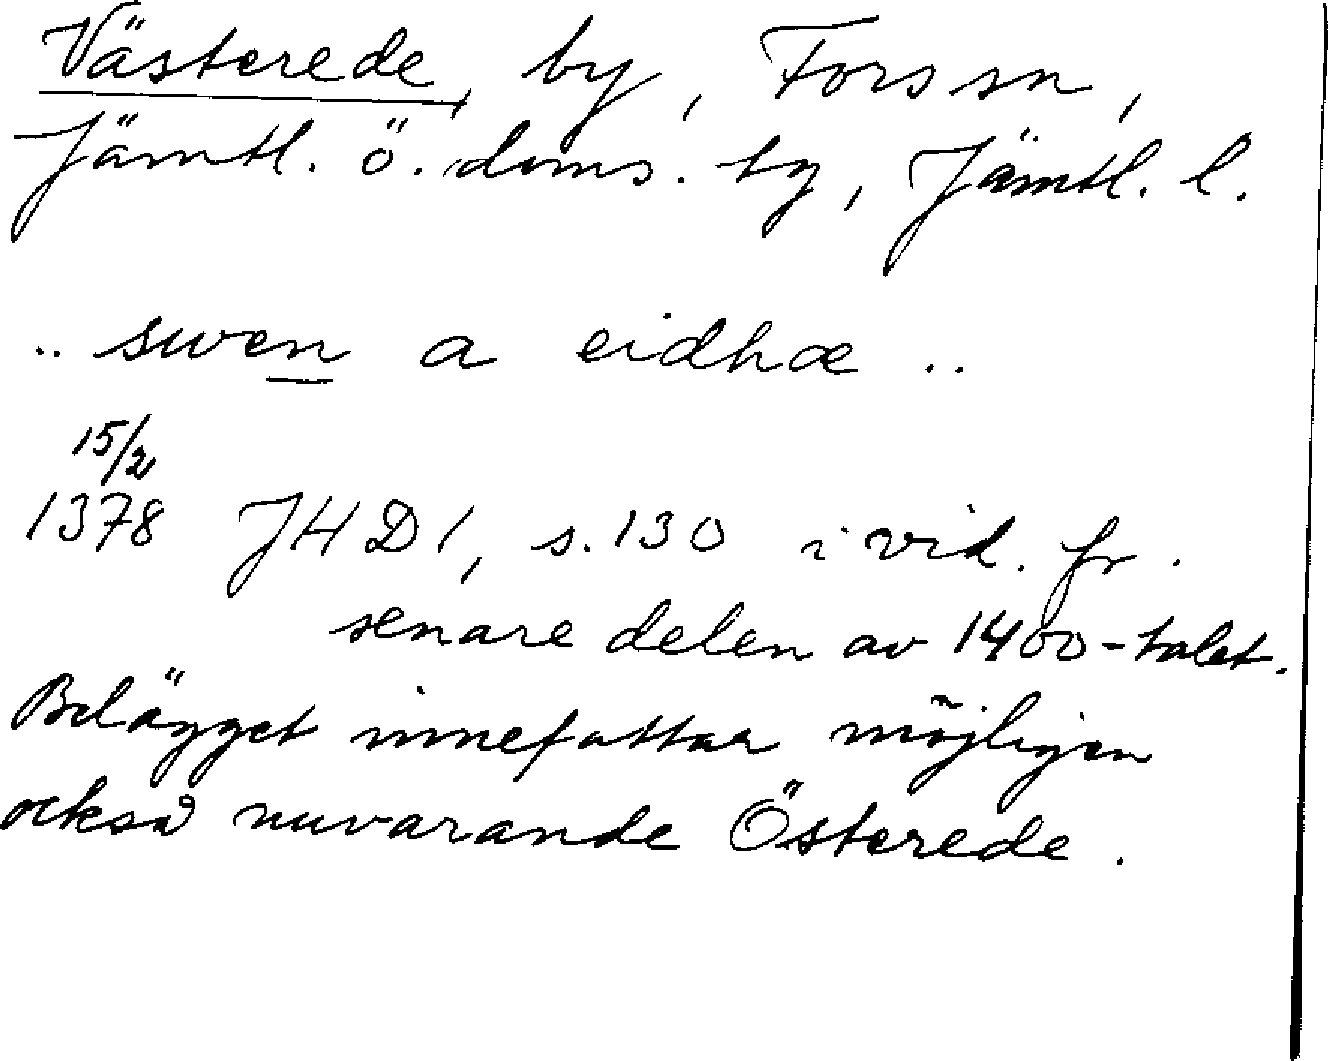 Västerede, by, Fors sn,
Jämtl. ö. doms. by, Jämtl. l.
.. swen a eidhæ ..
15/2
1378 JHD 1, s. 130 i vid. fr.
senare delen av 1400-talet.
Belägget innefattar möjligen
också nuvarande Österede.